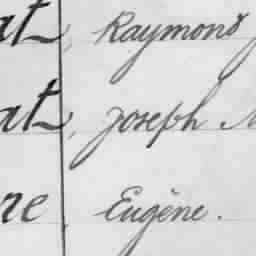 at, Raymond
at, Joseph
ne, Eugène.